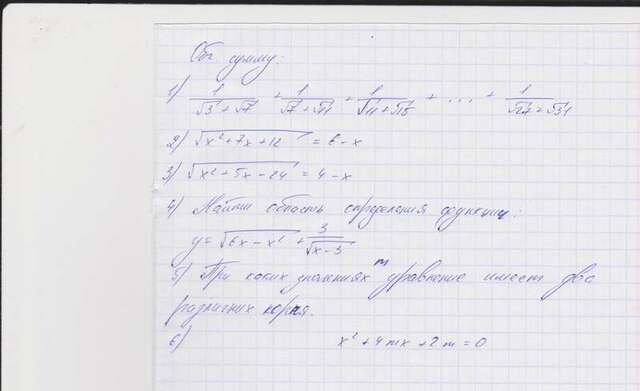 Выч. сумму:
1) 1/(√3+√7) + 1/(√7+√11) + 1/(√11+√15) + ... + 1/(√27+√31)
2) √(x²+7x+12) = 6-x
3) √(x²+5x-24) = 4-x
4) Найти область определения функции:
y=√(6x-x²) + 3/√(x-3)
5) При каких значениях m уравнение имеет два
различных корня.
6) x²+4mx+2m=0